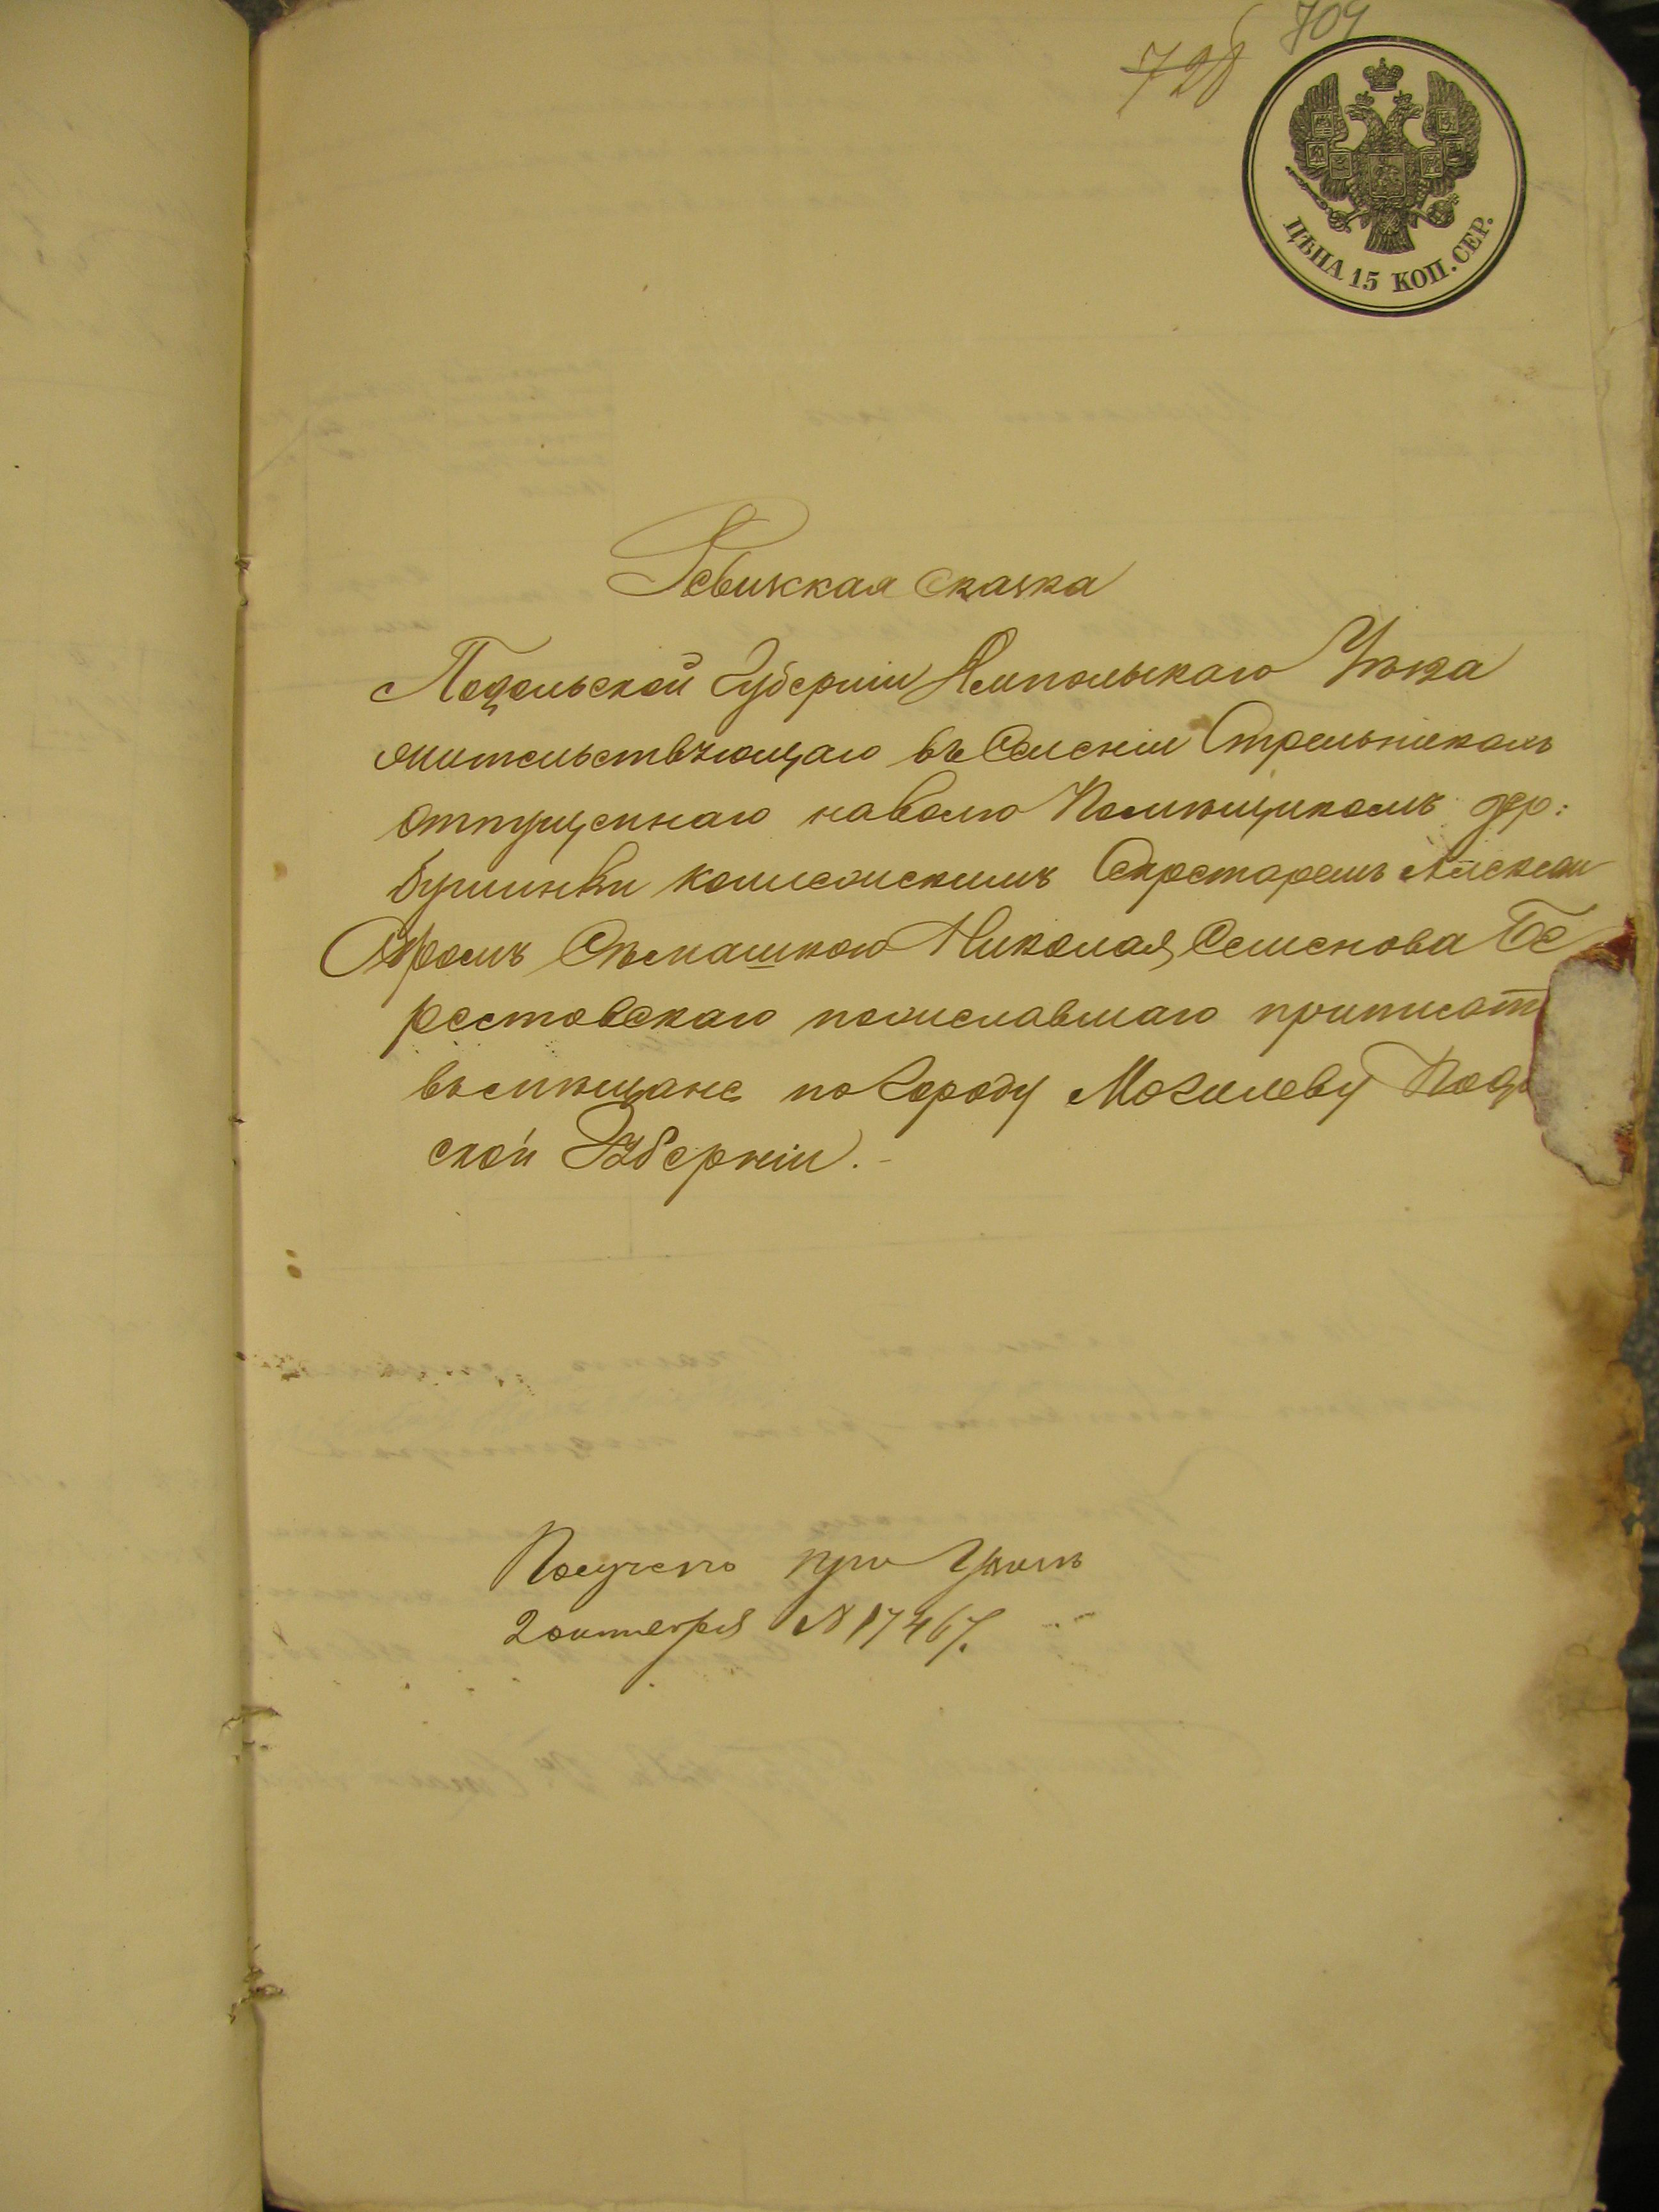 704
728
ЦѢНА 15 КОП. СЕР.
Ревизкая Сказка
Подольской Губерніи Ямпольскаго Уѣзда
жительствующаго въ Селеніи Стрельникахъ
отпущеннаго наволю Помѣщикомъ дер:
бушинки колежскимъ Секретаремъ Алексан
дромъ Николая Семенова Бе
рестовскаго пожелавшаго приписат
вьмѣщане по Городу Могилеву Под
ской Губерніи.-
Получено при
2 октября № 17467.